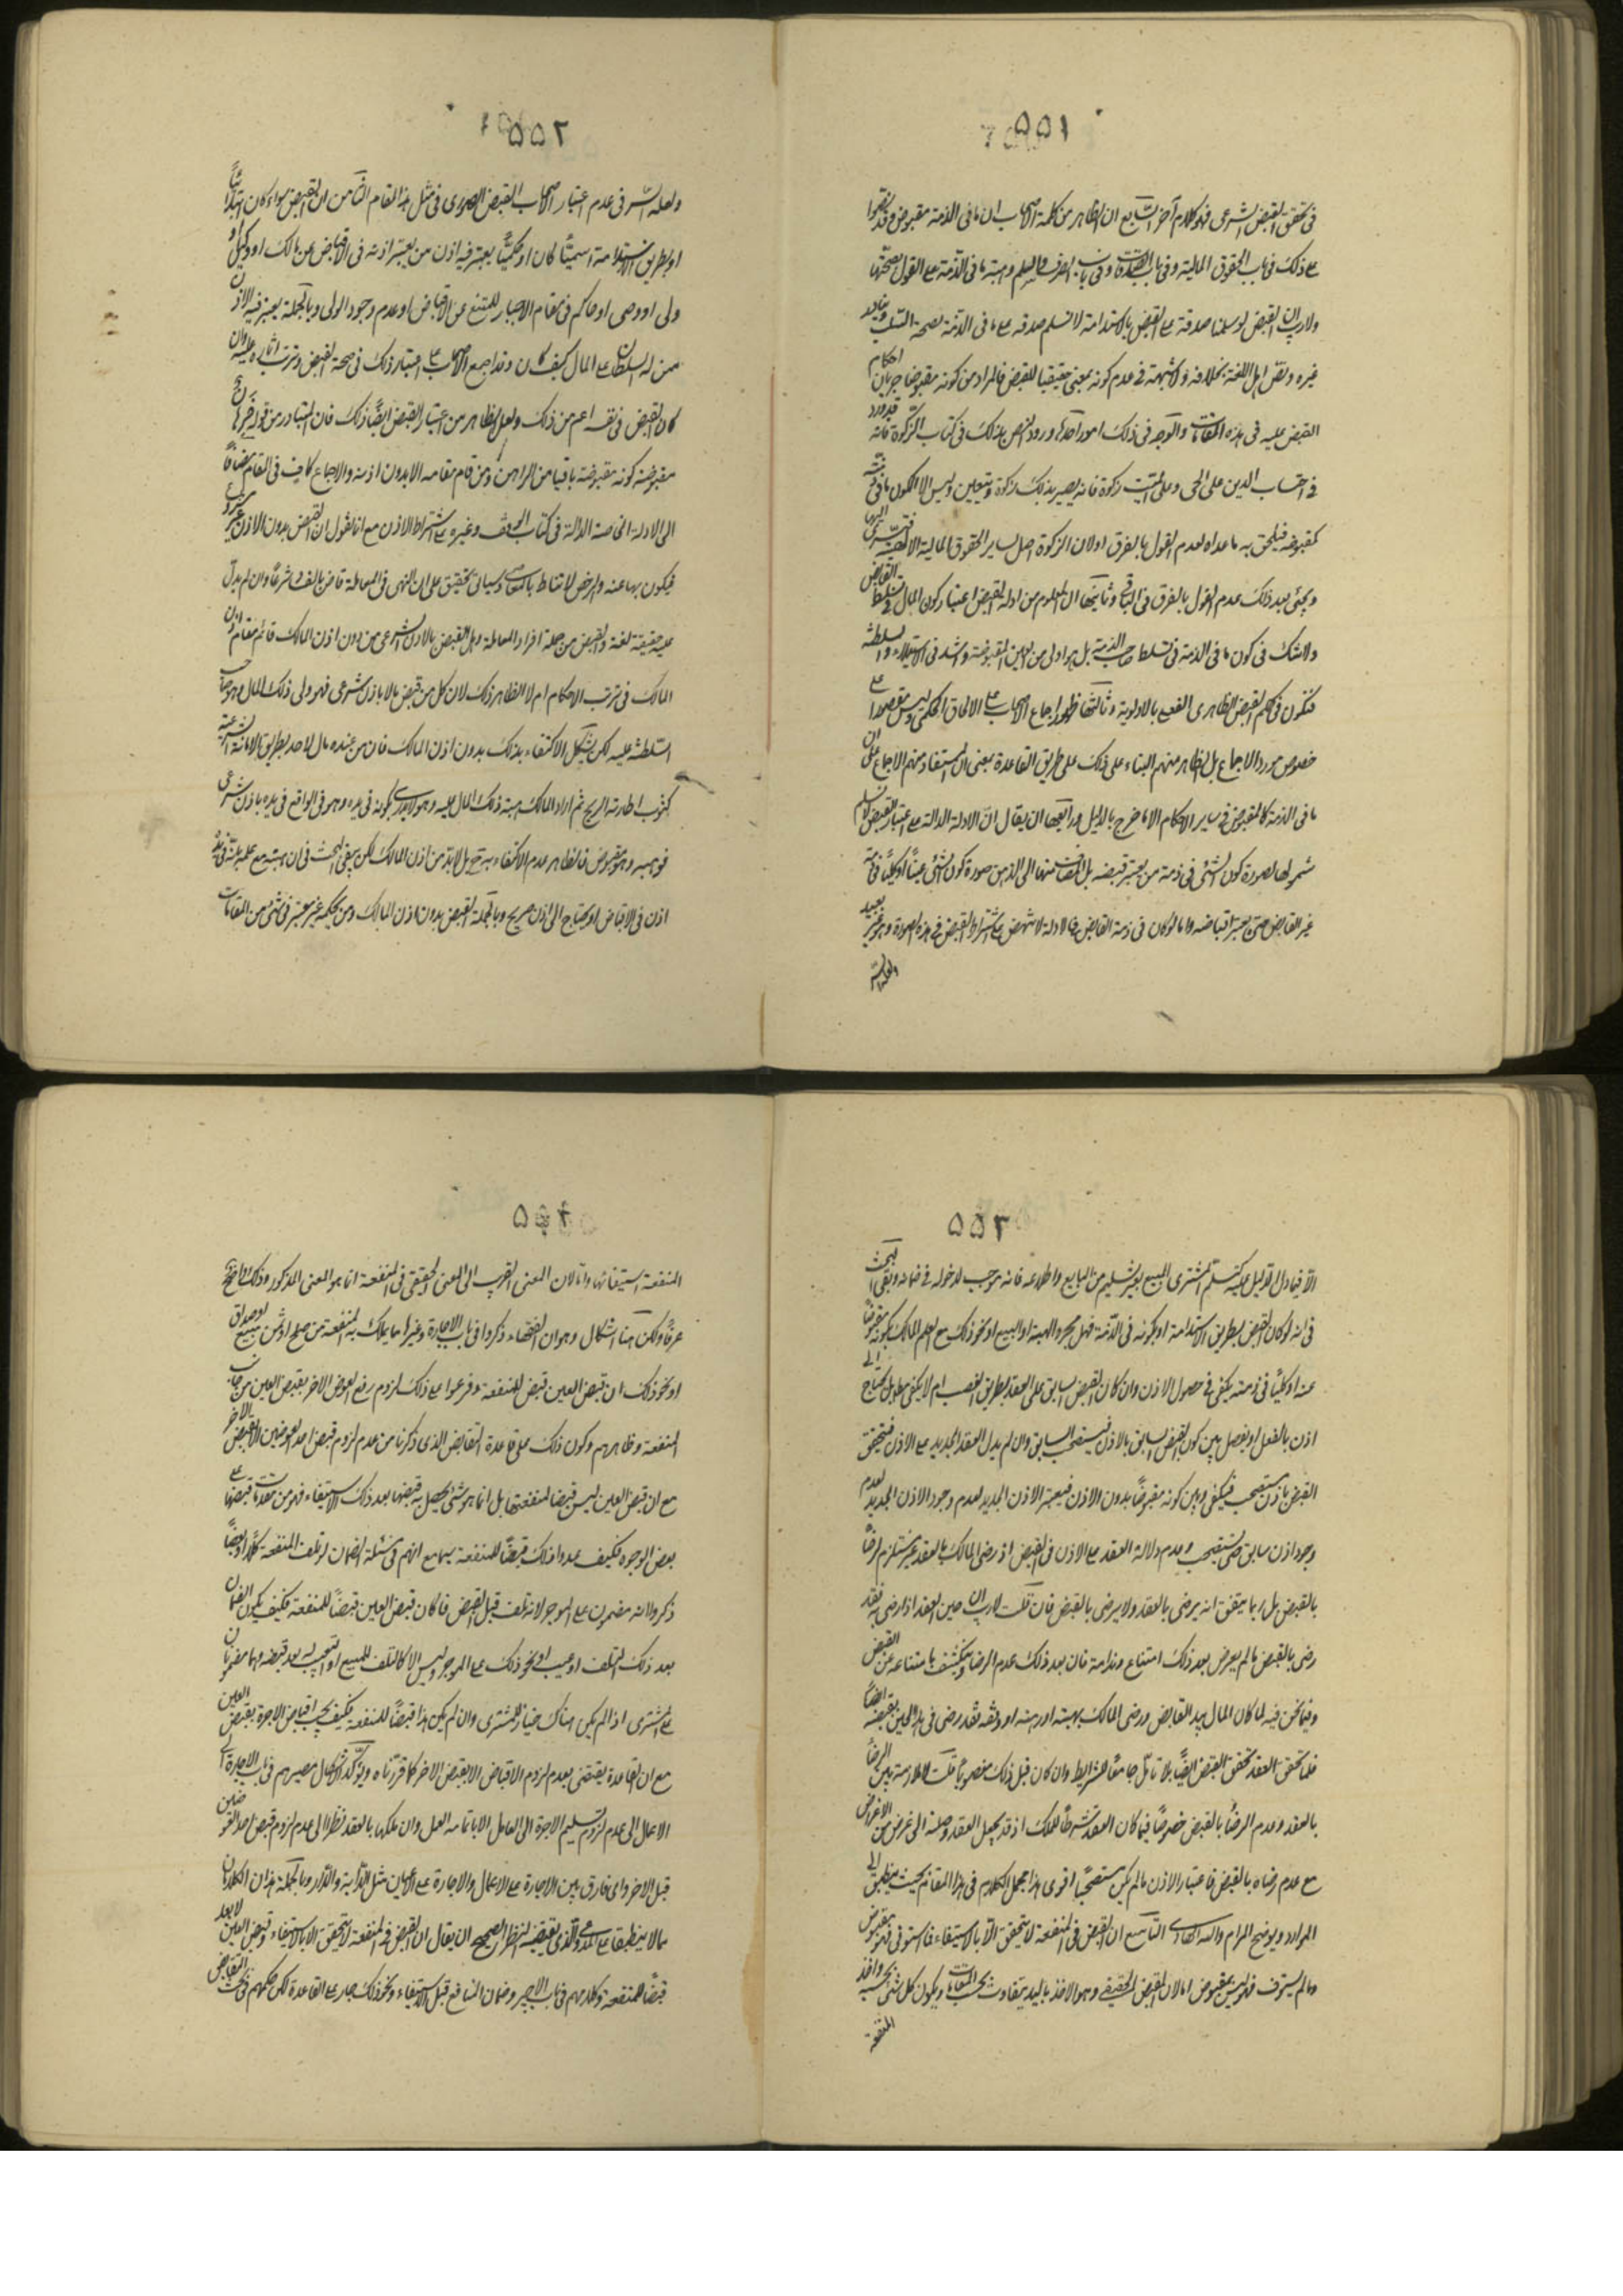 ٥٥١
في تحقق القبض الشرعي فهو كلام آخر السابع ان الظاهر من كلمة الاصحاب ان ما في الذمة مقبوض وقد نصوا
على ذلك في باب الحقوق المالية وفي باب الصدقات وفي باب الصرف والسلم وهبة ما في الذمة على القول بصحتها
ولا ريب ان القبض لو سلمنا صدقه على القبض بالاستدامة لا نسلم صدقه على ما في الذمة لصحة السلب
غيره ونقل اهل اللغة بخلافه ولا شبهة في عدم كونه بمعنى حقيقيا للقبض فالمراد من كونه مقبوضا جريان احكام
القبض عليه في هذه المقامات والوجه في ذلك امور احدها ورود النص بذلك في كتاب الزكوة فانه قد ورد
في احتساب الدين على الحي وعلى الميت زكوة فانه يصير بذلك زكوة ويتعين وليس الا لكون ما في ذمته
كمقبوضه فيلحق به ما عداه لعدم القول بالفرق اولان الزكوة اصل لساير الحقوق المالية
ويجئ بعد ذلك عدم القول بالفرق في الباقي وثانيها ان المعلوم من ادلة القبض اعتبار كون المال في تسلط القابض
ولا شك في كون ما في الذمة في تسلط صاحب الذمة بل هو اولى من العين المقبوضة واشد في الاستيلاء والسلطنة
فتكون في حكم القبض الظاهري الفعلي بالاولوية وثالثها ظهور اجماع الاصحاب على الالحاق الحكمي وليس مقصورا على
خصوص مورد الاجماع بل الظاهر منهم البناء على ذلك على طريق القاعدة بمعنى ان المستفاد منهم الاجماع على ان
ما في الذمة كالمقبوض في ساير الاحكام الا ما خرج بالدليل ورابعها ان يقال ان الادلة الدالة على اعتبار القبض لا نسلم
شمولها لصورة كون الشئ في ذمة من يعتبر قبضه بل المنساق منها الى الذهن صورة كون الشئ عينا او كليا في ذمة
غير القابض حتى يعتبر اقباضه واما لو كان في ذمة القابض فالادلة لا تنهض على اشتراط القبض في هذه الصورة وهو غير بعيد
ولعله السر
٥٥٢
ولعله السر في عدم اعتبار اصحاب القبض الصوري في مثل هذا المقام الثامن ان القبض سواء كان ابتدائيا
او بطريق الاستدامة حسيا كان او حكميا يعتبر فيه اذن من يعتبر اذنه في الاقباض من مالك او وكيل او
ولي او وصي او حاكم في مقام الاجبار للممتنع من الاقباض او عدم وجود الولي وبالجملة يعتبر فيه الاذن
ممن له السلطان على المال كيف كان وقد اجمع الاصحاب على اعتبار ذلك في صحة القبض وترتب اثاره عليه وان
كان القبض في نفسه اعم من ذلك ولعل الظاهر من اعتبار القبض ايضا ذلك فان المتبادر من قوله
مقبوضة كونه مقبوضة باقباض من الراهن ومن قام مقامه لا بدون اذنه والاجماع كاف في المقام مضافا
الى الادلة الخاصة الدالة في كتاب الوقف وغيره على اشتراط الاذن مع انا نقول ان القبض بدون الاذن غير مشروع
فيكون منهيا عنه والرخص لا تناط بالمعاصي وسيأتي تحقيق على ان النهي في المعاملة قاض بالفساد شرعا وان لم يدل
عليه حقيقة لغة والقبض من جملة افراد المعاملة وهل القبض بالاذن الشرعي من دون اذن المالك قائم مقام اذن
المالك في ترتب الاحكام ام لا الظاهر ذلك لان كل من قبض مالا باذن شرعي فهو ولي ذلك المال
السلطنة عليه لكن يشكل الاكتفاء بذلك بدون اذن المالك فان من عنده مال لاحد بطريق الامانة الشرعية
كثوب اطارته الريح ثم اراد المالك هبة ذلك المال عليه وهو لا يدري بكونه في يده وهو في الواقع في يده باذن شرعي
فوهبه وهو مقبوض فالظاهر عدم الاكتفاء به ح بل لابد من اذن المالك لكن يبقى البحث في ان هبته مع علمه بانه في يده
اذن في الاقباض او يحتاج الى اذن صريح وبالجملة القبض بدون اذن المالك ومن بحكمه غير معتبر في شئ من المقامات
٥٥٣
الا فيما دل الدليل عليه كتسلم المشتري المبيع بغير تسليم من البايع واطلاعه فانه موجب لدخوله في ضمانه وبقي البحث
في انه لو كان القبض بطريق الاستدامة او بكونه في الذمة فهل مجرد الهبة او البيع او نحو ذلك مع علم المالك بكونه مقبوضا
عنده او كليا في ذمته يكفي في حصول الاذن وان كان القبض السابق على العقد بطريق الغصب ام لا يكفي مطلقا بل يحتاج الى
اذن بالفعل او يفصل بين كون القبض السابق بالاذن فيستصحب السابق وان لم يدل العقد الجديد على الاذن فيتحقق
القبض باذن مستصحب فيكفي وبين كونه مقبوضا بدون الاذن فيعتبر الاذن الجديد لعدم وجود الاذن الجديد لعدم
وجود اذن سابق حتى يستصحب وعدم دلالة العقد على الاذن في القبض اذ رضى المالك بالعقد غير مستلزم لرضاه
بالقبض بل ربما يتفق انه يرضى بالعقد ولا يرضى بالقبض فان قلت لا ريب ان حين العقد اذا رضى به فقد
رضى بالقبض ما لم يعرض بعد ذلك امتناع وندامة فان بعد ذلك عدم الرضا وينكشف بامتناعه عن القبض
وفيما نحن فيه لما كان المال بيد القابض ورضى المالك بهبته او رهنه او وقفه فقد رضى في هذا الحين بقبضه ايضا
فلما تحقق العقد تحقق القبض ايضا بلا تأمل جامعا للشرايط وان كان قبل ذلك مغصوبا قلت لا ملازمة بين الرضا
بالعقد وعدم الرضا بالقبض خصوصا فيما كان العقد شرطا للملك اذ قد يجعل العقد وصلة الى غرض من الاغراض
مع عدم رضاه بالقبض فاعتبار الاذن ما لم يكن مستصحبا اقوى هذا مجمل الكلام في هذا المقام بحيث ينطبق الى
الموارد ويوضح المرام والله الهادي التاسع ان القبض في المنفعة لا يتحقق الا بالاستيفاء فما استوفي فهو مقبوض
وما لم يستوف فليس بمقبوض اما لان القبض الحقيقي وهو الاخذ باليد يتفاوت بحسب المقامات ويكون كل شئ بحسبه واخذ
المنفعة
٥٥٤
المنفعة استيفائها واما لان المعنى القريب الى المعنى الحقيقي في المنفعة انما هو المعنى المذكور وذلك واضح
عرفا ولكن هنا اشكال وهو ان الفقهاء ذكروا في باب الاجارة وغيرها مما يملك به المنفعة من صلح او ثمن مبيع او صداق
او نحو ذلك ان قبض العين قبض للمنفعة وفرعوا على ذلك لزوم دفع العوض الاخر بقبض العين من جانب
المنفعة وظاهرهم وكون ذلك على قاعدة التقابض الذي ذكرنا من عدم لزوم قبض احد العوضين الا بقبض الاخر
مع ان قبض العين ليس قبضا لمنفعتها بل انما هو شئ يحصل به قبضها بعد ذلك بالاستيفاء فهو من مقدمات قبضها على
بعض الوجوه فكيف عدوا ذلك قبضا للمنفعة سيما مع انهم في مسئلة الضمان لو تلف المنفعة كلا او بعضا
ذكروا انه مضمون على الموجر لانه تلف قبل القبض فاذا كان قبض العين قبضا للمنفعة فكيف يكون الضمان
بعد ذلك التلف او عيب او نحو ذلك على الموجر وليس الا كالتلف للمبيع او التعيب به بعد قبضه وهما مضمونان
على المشتري اذا لم يكن هناك خيار للمشتري وان لم يكن هذا قبضا للمنفعة فكيف يجب اقباض الاجرة بقبض العين
مع ان القاعدة يقتضي بعدم لزوم الاقباض الا بقبض الاخر كما قررناه ويؤكد الاشكال مصيرهم في باب الاجارة على
الاعمال الى عدم لزوم تسليم الاجرة الى العامل الا باتمامه العمل وان ملكها بالعقد نظرا الى عدم لزوم قبض احد العوضين
قبل الاخر واي فارق بين الاجارة على الاعمال والاجارة على الاعيان مثل الدابة والدار وبالجملة هذان الكلامان
مما لا ينطبقا على المدعى والذي يقتضيه النظر الصحيح ان يقال ان القبض في المنفعة لا يتحقق الا بالاستيفاء وقبض العين لا يعد
قبضا للمنفعة وكلامهم في باب الاجير وضمان المنافع قبل الاستيفاء ونحو ذلك جار على القاعدة لكن حكمهم في بحث التقابض